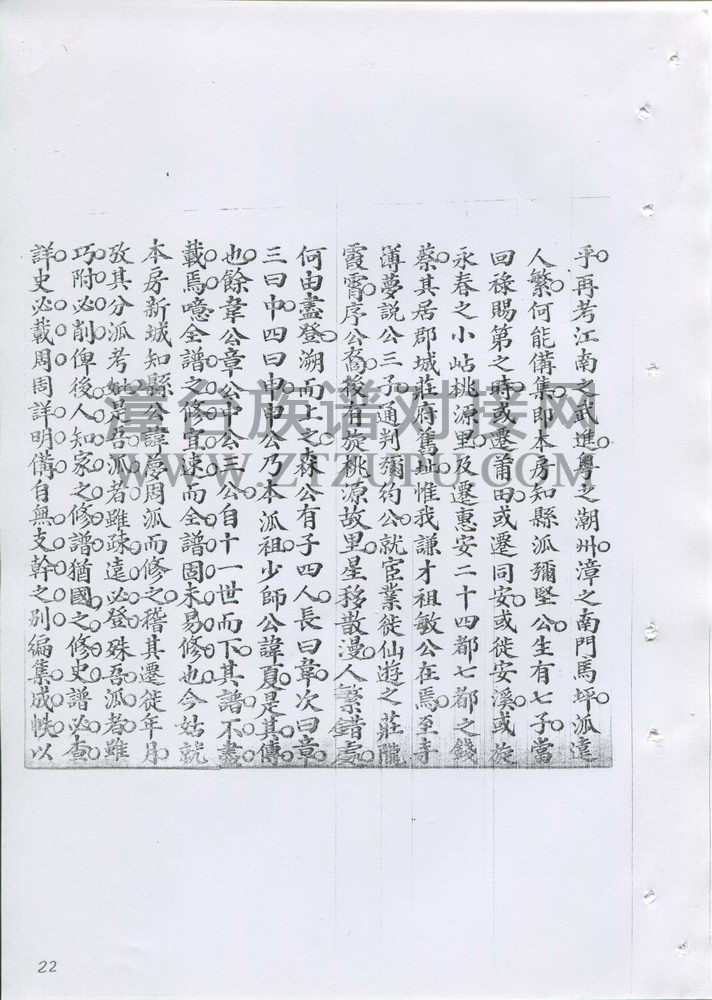 乎再考江南之武進粵之潮州漳之南門馬坪派遠
人繁何能備集即本房知縣派彌堅公生有七子當
回祿賜第之時或遷莆田或遷同安或徙安溪或旋
永春之小岵桃源里及遷惠安二十四都七都之錢
蔡其居郡城莊府舊址惟我謙才祖敏公在焉至寺
薄夢說公三子通判彌約公就宦業徙仙遊之莊隴
霞霄序公裔後有旋桃源故里星移散漫人繁錯處
何由盡登溯而上之森公有子四人長曰韋次曰章
三曰中四曰申申公乃本派祖少師公諱夏是其傳
也餘韋公章公中公三公自十一世而下其譜不盡
載焉噫全譜之修宜速而全譜固未易修也今姑就
本房新城知縣公諱夢周派而修之稽其遷徙年月
攷其分派考妣是吾派者雖疎遠必登殊吾派者雖
巧附必削俾後人知家之修譜猶國之修史譜必查
詳史必載周周詳明備自無支幹之別編集成帙以
津台族谱对接网
WWW.ZTZUPU.COM
22